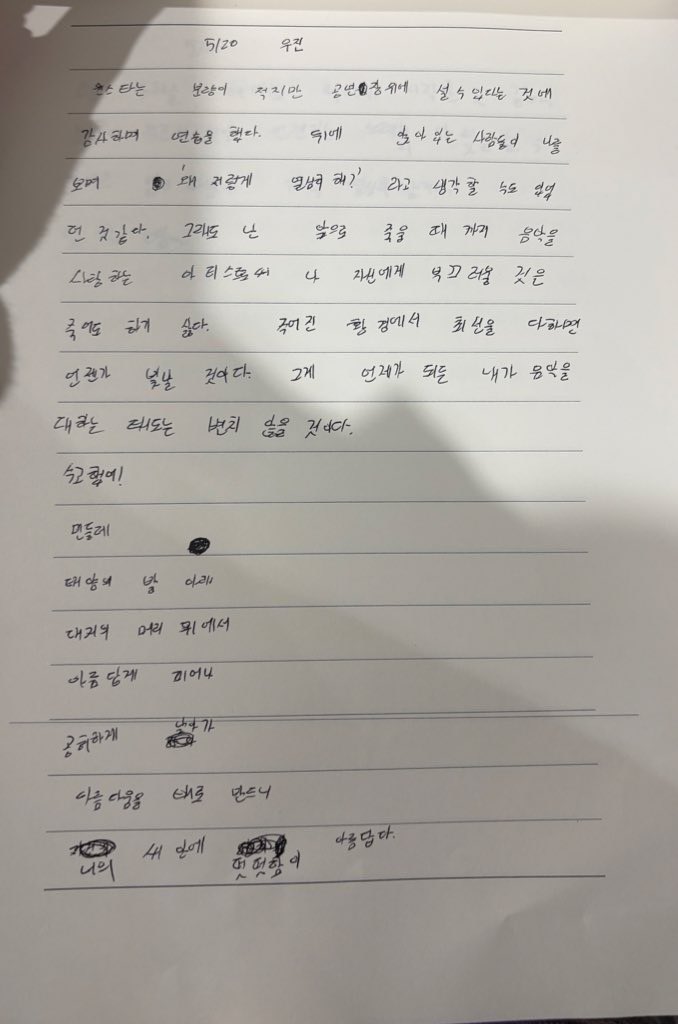 5/20 우진
몬스타는 분량이 적지만 공연장위에 설 수 있다는 것에
감사하며 연습을 했다. 뒤에 앉아 있는 사람들이 나를
보며 '왜 저렇게 열심히 해?' 라고 생각할 수도 있었
던 것 같다. 그래도 난 앞으로 죽을 때 까지 음악을
사랑하는 아티스트로써 나 자신에게 부끄러울 것은
죽어도 하기 싫다. 주어진 환경에서 최선을 다하면
언젠가 빛날 것이다. 그게 언제가 되든 내가 음악을
대하는 태도는 변치 않을 것이다.
수고했어!
민들레
태양의 밤 아래
대지의 머리 위에서
아름답게 피어나
공허하게 날아가
아름다움을 배로 만드니
너의 새 안에 떳떳함이 아름답다.